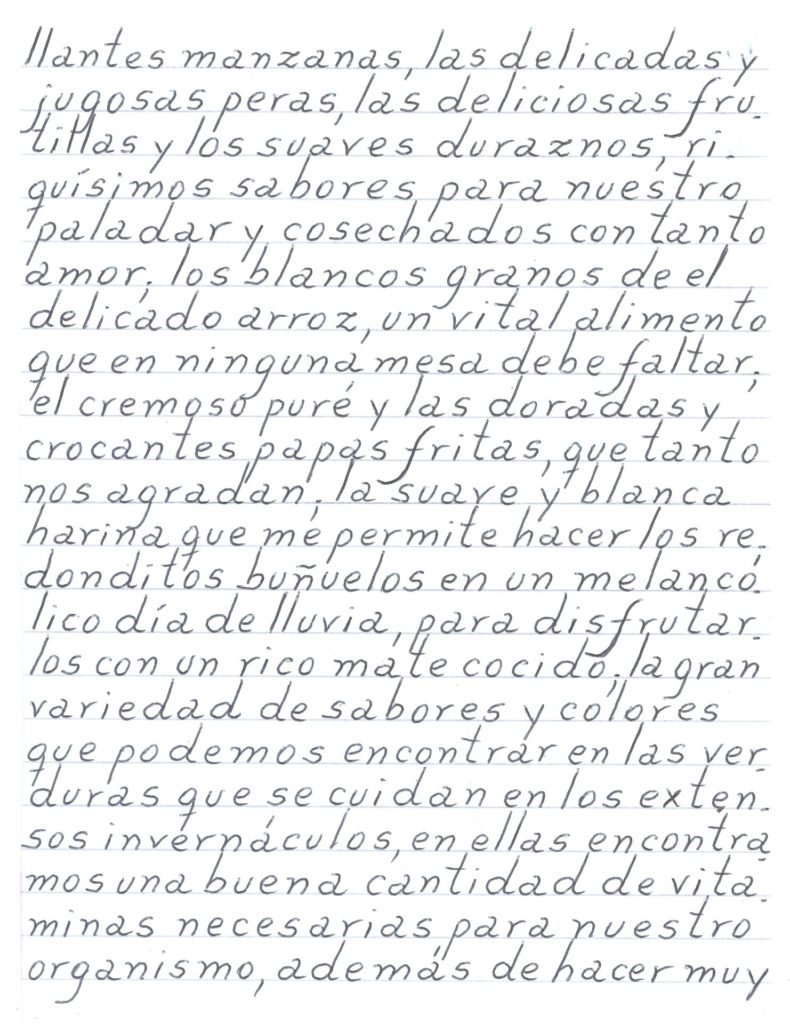 llantes manzanas, las delicadas y
jugosas peras, las deliciosas fru-
tillas y los suaves duraznos, ri-
quísimos sabores para nuestro
paladar y cosechados con tanto
amor; los blancos granos de el
delicado arroz, un vital alimento
que en ninguna mesa debe faltar;
el cremoso puré y las doradas y
crocantes papas fritas, que tanto
nos agradan; la suave y blanca
harina que me permite hacer los re-
donditos buñuelos en un melancó-
lico día de lluvia, para disfrutar-
los con un rico mate cocido; la gran
variedad de sabores y colores
que podemos encontrar en las ver-
duras que se cuidan en los exten-
sos invernáculos, en ellas encontra-
mos una buena cantidad de vita-
minas necesarias para nuestro
organismo, además de hacer muy